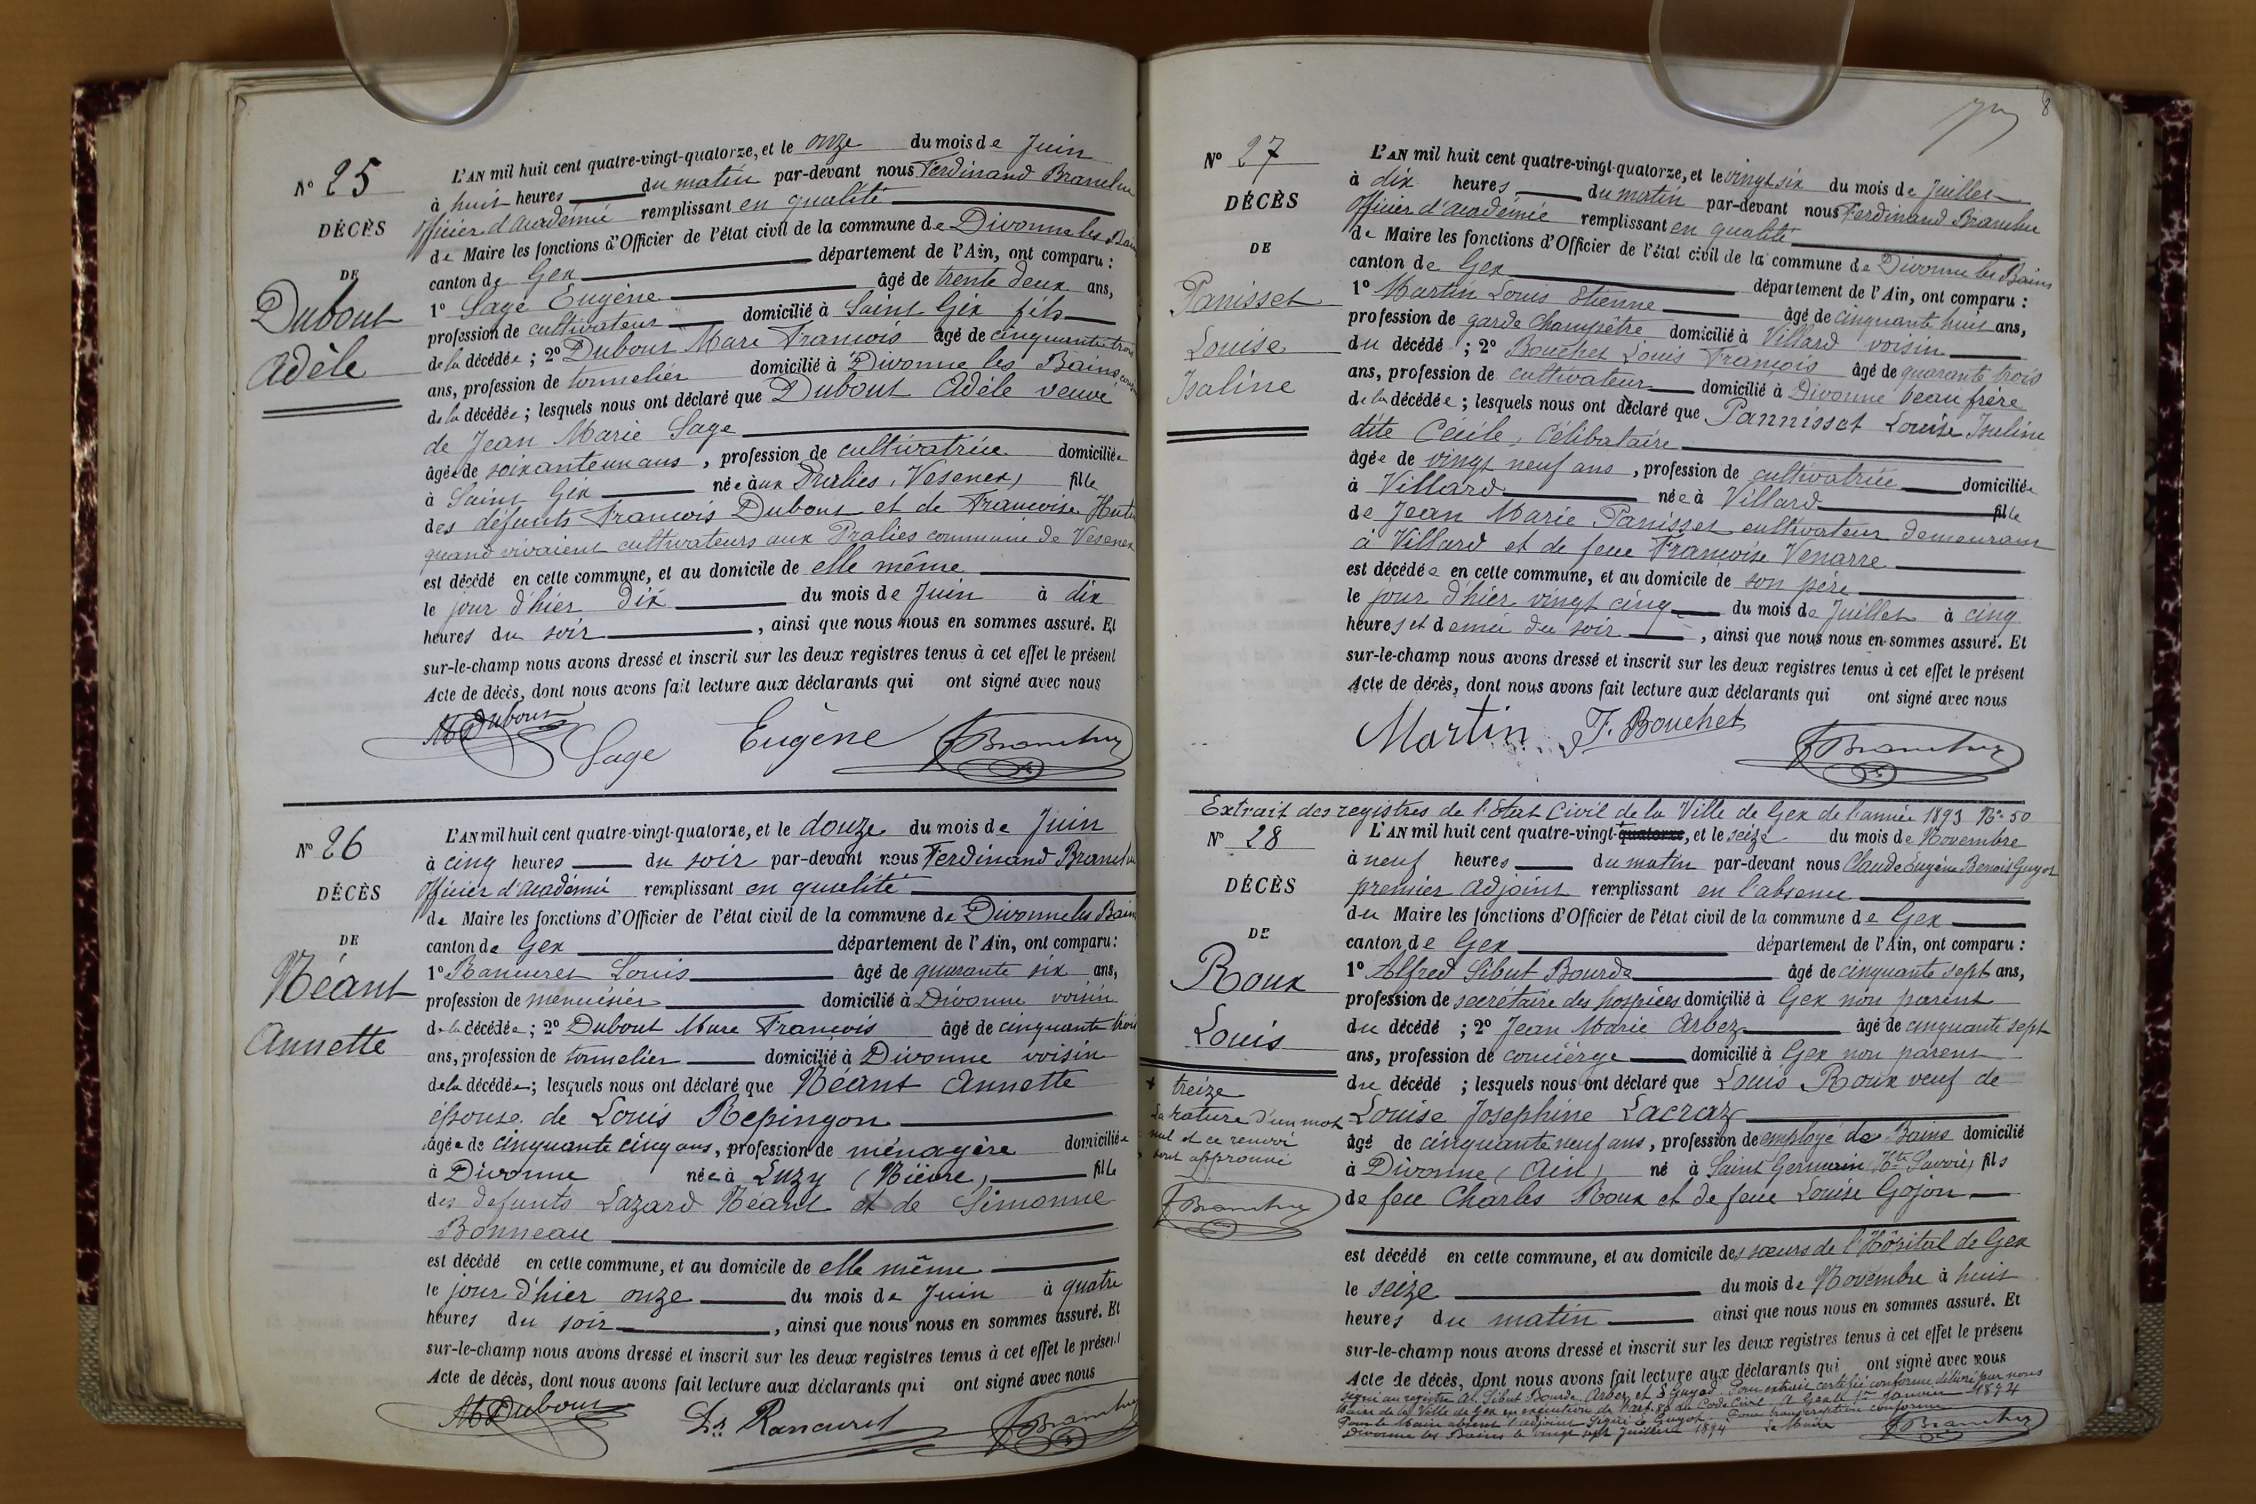 Nº 25
DÉCÈS
DE
Dubout
Adèle
L'AN mil huit cent quatre-vingt-quatorze, et le onze du mois de Juin
à huit heures du matin par-devant nous Ferdinand
Officier d'académie remplissant en qualité
de Maire les fonctions d'Officier de l'état civil de la commune de Divonne les Bains
canton de Gex département de l'Ain, ont comparu :
1º Sage Eugène âgé de trente deux ans,
profession de cultivateur domicilié à Saint Gix fils
de la décédée ; 2º Dubout Marc François âgé de cinquante trois
ans, profession de tonnelier domicilié à Divonne les Bains
de la décédée ; lesquels nous ont déclaré que Dubout Adèle veuve
de Jean Marie Sage
âgée de soixante un ans, profession de cultivatrice domiciliée
à Saint Gix née aux Pralies, Vesenex, fille
des défunts François Dubout et de Françoise
quand vivaient cultivateurs aux Pralies commune de Vesenex
est décédé en cette commune, et au domicile de elle même
le jour d'hier dix du mois de Juin à dix
heures du soir, ainsi que nous nous en sommes assuré. Et
sur-le-champ nous avons dressé et inscrit sur les deux registres tenus à cet effet le présent
Acte de décès, dont nous avons fait lecture aux déclarants qui ont signé avec nous
M Dubout
Sage Eugène
Nº 26
DÉCÈS
DE
Néant
Annette
L'AN mil huit cent quatre-vingt-quatorze, et le douze du mois de Juin
à cinq heures du soir par-devant nous Ferdinand
Officier d'académie remplissant en qualité
de Maire les fonctions d'Officier de l'état civil de la commune de Divonne les Bains
canton de Gex département de l'Ain, ont comparu :
1º Rancuret Louis âgé de quarante six ans,
profession de menuisier domicilié à Divonne voisin
de la décédée ; 2º Dubout Marc François âgé de cinquante trois
ans, profession de tonnelier domicilié à Divonne voisin
de la décédée ; lesquels nous ont déclaré que Néant Annette
épouse de Louis Repingon
âgée de cinquante cinq ans, profession de ménagère domiciliée
à Divonne née à Luzy (Nièvre) fille
des défunts Lazard Néant et de Simonne
Bonneau
est décédé en cette commune, et au domicile de elle même
le jour d'hier onze du mois de Juin à quatre
heures du soir, ainsi que nous nous en sommes assuré. Et
sur-le-champ nous avons dressé et inscrit sur les deux registres tenus à cet effet le présent
Acte de décès, dont nous avons fait lecture aux déclarants qui ont signé avec nous
M Dubout Ls Rancuret
8
Nº 27
DÉCÈS
DE
Panisset
Louise
Isaline
L'AN mil huit cent quatre-vingt-quatorze, et le vingt six du mois de Juillet
à dix heures du matin par-devant nous Ferdinand
Officier d'académie remplissant en qualité
de Maire les fonctions d'Officier de l'état civil de la commune de Divonne les Bains
canton de Gex département de l'Ain, ont comparu :
1º Martin Louis Etienne âgé de cinquante huit ans,
profession de garde champêtre domicilié à Villard voisin
du décédé ; 2º Bouchet Louis François âgé de quarante trois
ans, profession de cultivateur domicilié à Divonne beau frère
de la décédée ; lesquels nous ont déclaré que Pannisset Louise Isaline
dite Cécile, célibataire
âgée de vingt neuf ans, profession de cultivatrice domiciliée
à Villard née à Villard fille
de Jean Marie Panisset cultivateur demeurant
à Villard et de feue Françoise Venarre
est décédée en cette commune, et au domicile de son père
le jour d'hier vingt cinq du mois de Juillet à cinq
heures et demie du soir, ainsi que nous nous en sommes assuré. Et
sur-le-champ nous avons dressé et inscrit sur les deux registres tenus à cet effet le présent
Acte de décès, dont nous avons fait lecture aux déclarants qui ont signé avec nous
Martin F. Bouchet
Extrait des registres de l'Etat Civil de la Ville de Gex de l'année 1893 Nº 50
Nº 28
DÉCÈS
DE
Roux
Louis
treize
La rature d'un mot
nul et ce renvoi
sont approuvé
L'AN mil huit cent quatre-vingt-quatorze, et le seize du mois de Novembre
à neuf heures du matin par-devant nous Claude Eugène Benoit Guyot
premier adjoint remplissant en l'absence
du Maire les fonctions d'Officier de l'état civil de la commune de Gex
canton de Gex département de l'Ain, ont comparu :
1º Alfred Sibut Bourde âgé de cinquante sept ans,
profession de secrétaire des hospices domicilié à Gex non parent
du décédé ; 2º Jean Marie Arbez âgé de cinquante sept
ans, profession de concierge domicilié à Gex non parent
du décédé ; lesquels nous ont déclaré que Louis Roux veuf de
Louise Josephine Lacraz
âgé de cinquante neuf ans, profession de employé de Bains domicilié
à Divonne (Ain) né à Saint Germain Hte Savoie, fils
de feu Charles Roux et de feue Louise Gojon
est décédé en cette commune, et au domicile des sœurs de l'Hôpital de Gex
le seize du mois de Novembre à huit
heures du matin ainsi que nous nous en sommes assuré. Et
sur-le-champ nous avons dressé et inscrit sur les deux registres tenus à cet effet le présent
Acte de décès, dont nous avons fait lecture aux déclarants qui ont signé avec nous
signé au registre A. Sibut Bourde, Arbez et Guyot. Pour extrait certifié conforme délivré par nous
Maire de la Ville de Gex en exécution de l'art. 80 du Code Civil. A Gex le 1er Janvier 1894
Pour le Maire absent l'adjoint Signé E. Guyot. Pour transcription conforme
Divonne les Bains le vingt sept Juillet 1894 Le Maire